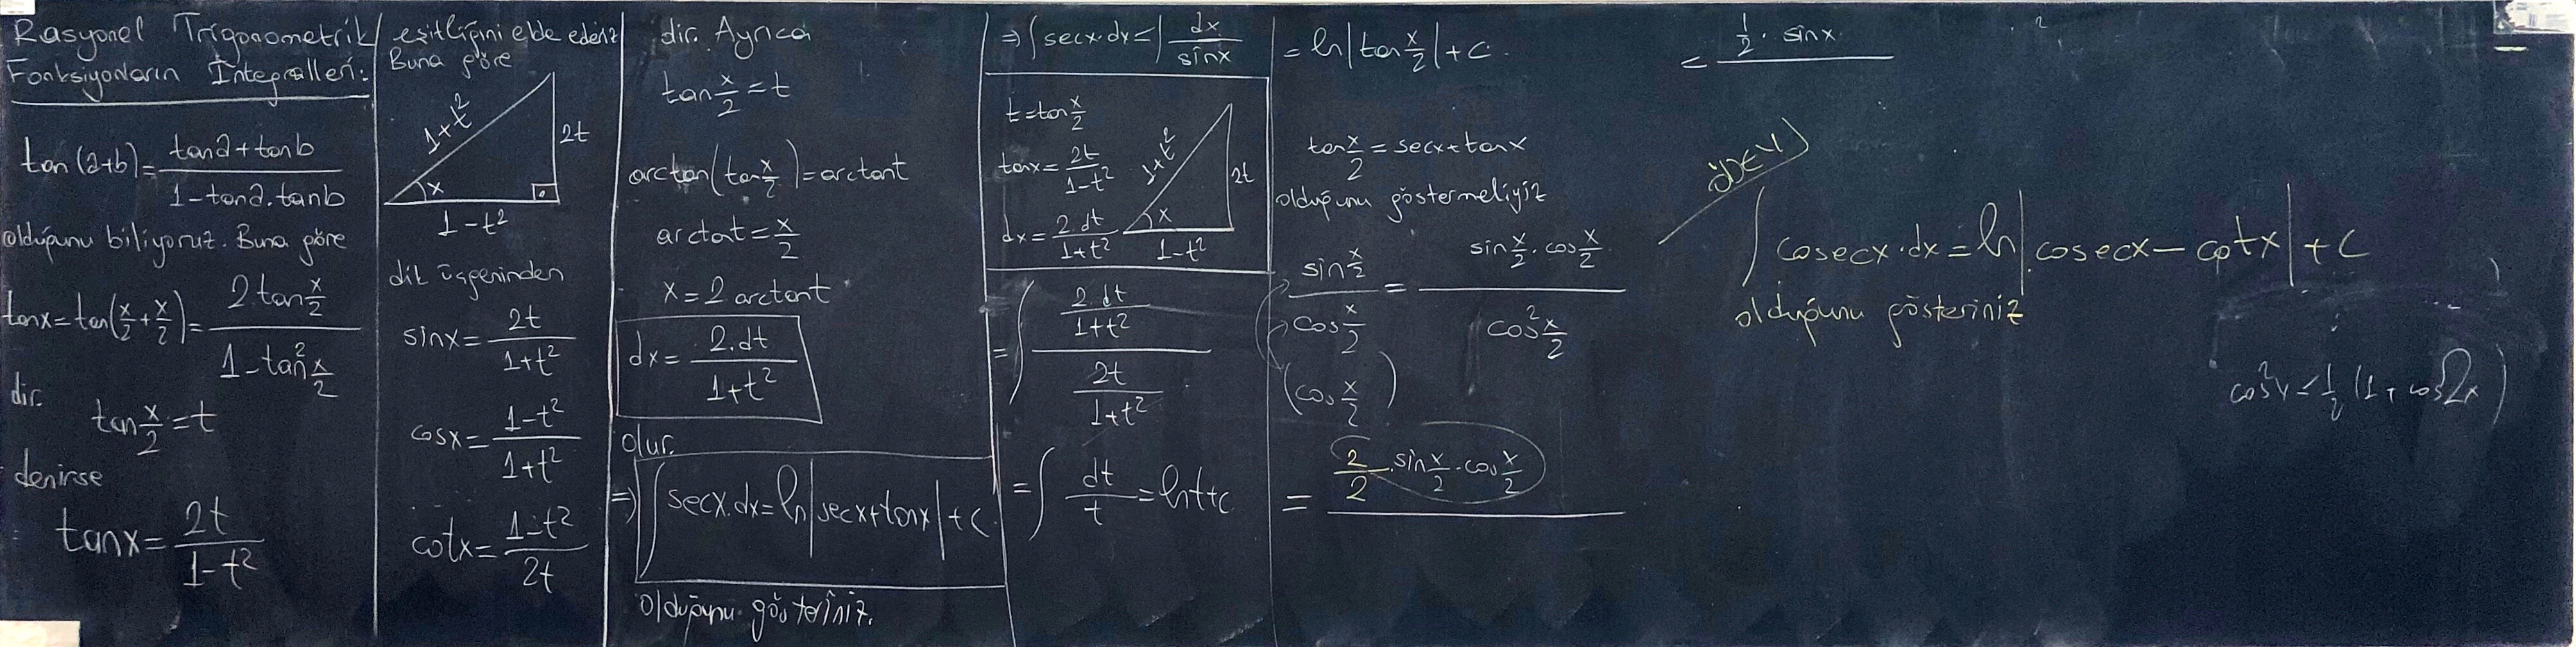 Rasyonel Trigonometrik
Fonksiyonların İntegralleri:
tan(a+b)= (tana+tanb)/(1-tana.tanb)
olduğunu biliyoruz. Buna göre
tanx=tan(x/2+x/2)= (2tan x/2)/(1-tan² x/2)
dir.
tan x/2 = t
denirse
tanx= 2t/(1-t²)
eşitliğini elde ederiz
Buna göre
1+t²
2t
x
1-t²
dik üçgeninden
sinx= 2t/(1+t²)
cosx= (1-t²)/(1+t²)
cotx= (1-t²)/2t
dir. Ayrıca
tan x/2 = t
arctan(tan x/2)=arctant
arctant= x/2
x=2 arctant
dx= 2.dt/(1+t²)
olur.
⇒ ∫secx.dx=ln|secx+tanx|+c
olduğunu gösteriniz.
⇒ ∫secx.dx=∫dx/sinx
t=tan x/2
tanx= 2t/(1-t²)
dx= 2.dt/(1+t²)
1+t²
2t
x
1-t²
= ∫ (2.dt/(1+t²))/(2t/(1+t²))
= ∫ dt/t = lnt+c
= ln|tan x/2|+c.
tan x/2 = secx+tanx
olduğunu göstermeliyiz
(sin x/2)/(cos x/2) = (sin x/2 . cos x/2)/(cos² x/2)
(cos x/2)
= 2/2 . sin x/2 . cos x/2
= 1/2 . sinx
ÖDEV
∫cosecx.dx=ln|cosecx-cotx|+c
olduğunu gösteriniz
cos²x=1/2 (1+cos2x)